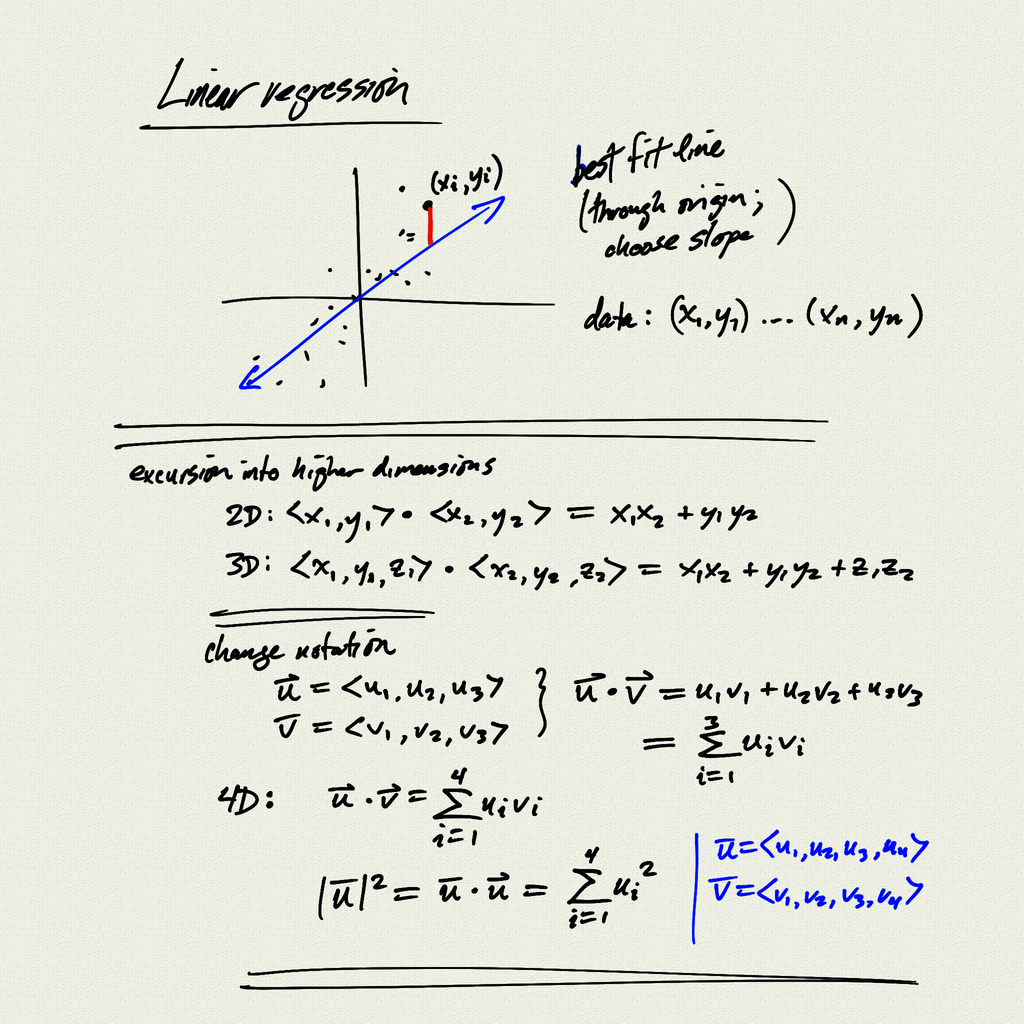 Linear regression
(xi, yi)
best fit line
(through origin;
choose slope)
data: (x₁, y₁) ... (xn, yn)
excursion into higher dimensions
2D: <x₁, y₁> • <x₂, y₂> = x₁x₂ + y₁y₂
3D: <x₁, y₁, z₁> • <x₂, y₂, z₂> = x₁x₂ + y₁y₂ + z₁z₂
change notation
u⃗ = <u₁, u₂, u₃> } u⃗ • v⃗ = u₁v₁ + u₂v₂ + u₃v₃
v̅ = <v₁, v₂, v₃>
= ∑_{i=1}^{3} uᵢvᵢ
4D: u⃗ · v⃗ = ∑_{i=1}^{4} uᵢvᵢ
u̅ = <u₁, u₂, u₃, u₄>
v̅ = <v₁, v₂, v₃, v₄>
|u̅|² = u̅ · u⃗ = ∑_{i=1}^{4} uᵢ²